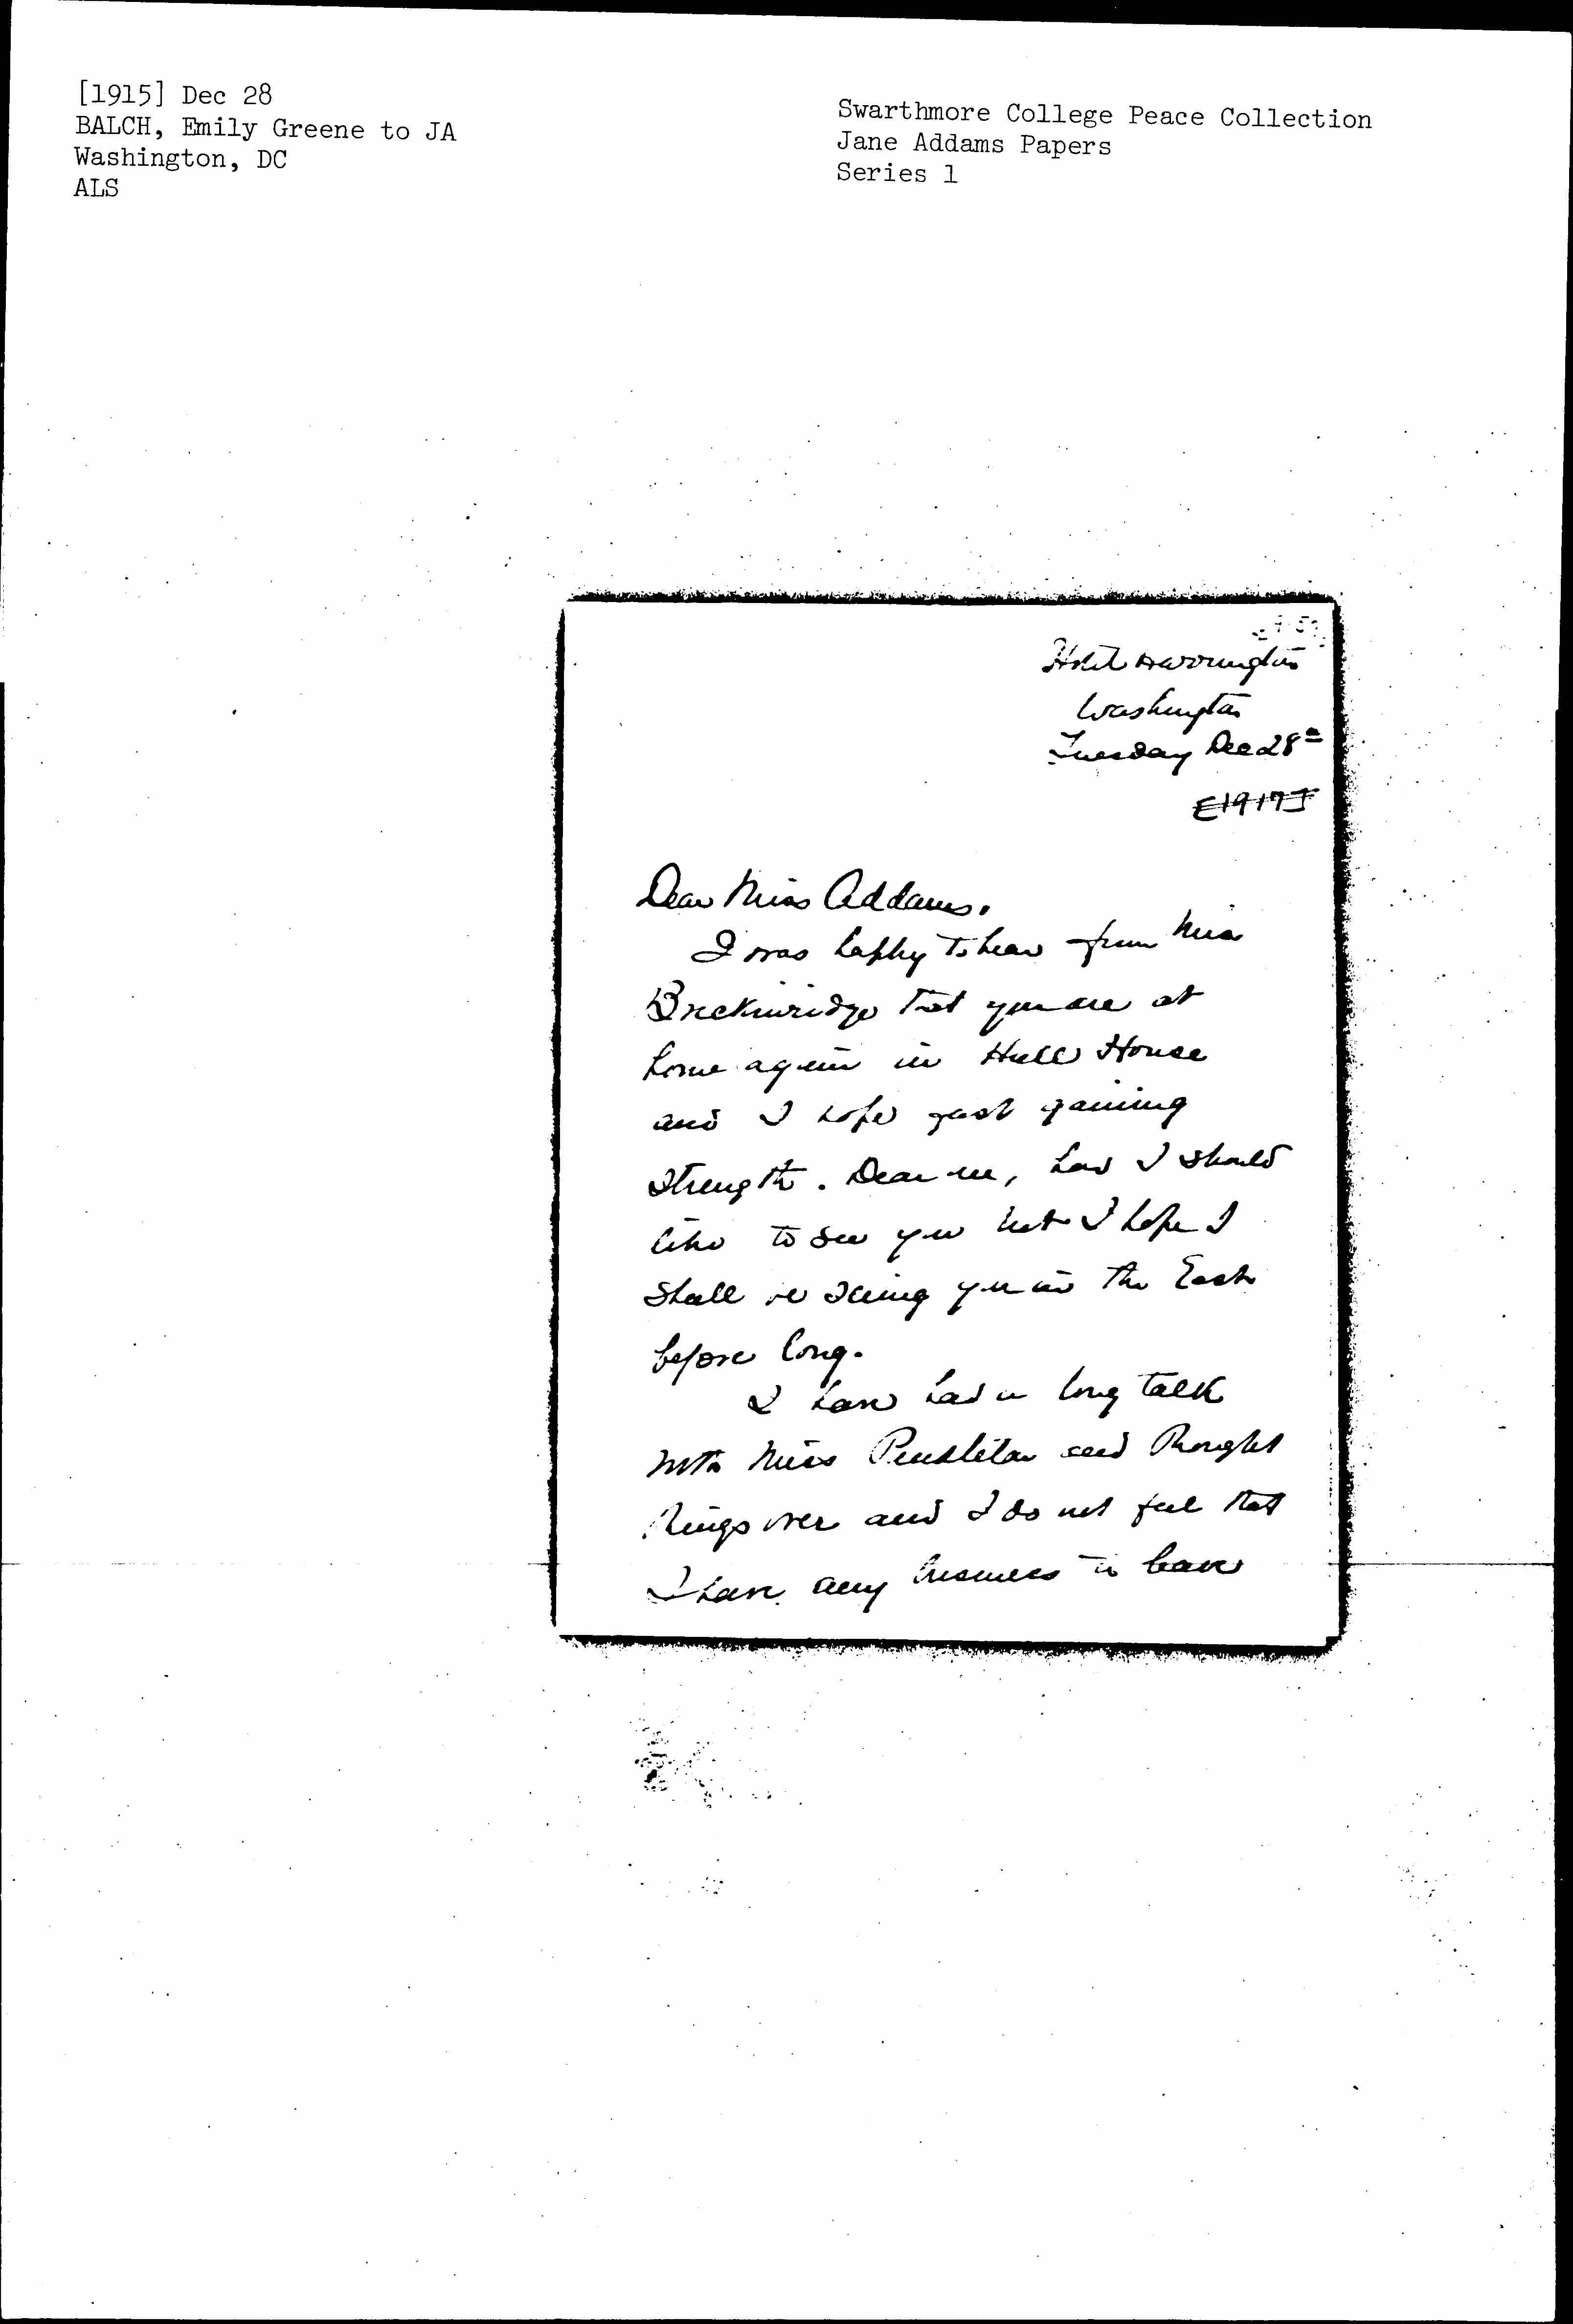 [1915] Dec 28
BALCH, Emily Greene to JA
Washington, DC
ALS
Swarthmore College Peace Collection
Jane Addams Papers
Series 1
Hotel Harrington
Washington
Tuesday Dec 28th
[1917]
Dear Miss Addams.
I was happy to hear from Miss
Breckinridge that you are at
home again in Hull House
and I hope fast gaining
strength. Dear me, how I should
like to see you but I hope I
shall be seeing you in the East
before long.
I have had a long talk
with Miss Pendleton and thought
things over and I do not feel that
I have any business to leave